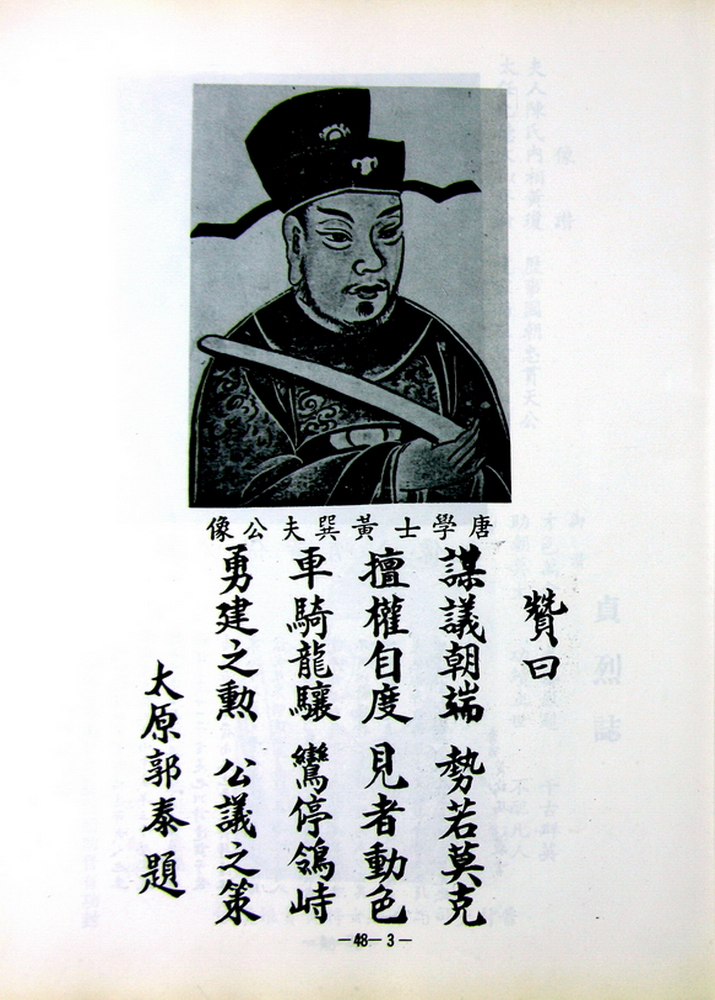 唐學士黃巽夫公像
贊曰
謀議朝端 勢若莫克
擅權自度 見者動色
車騎龍驤 鸞停鵠峙
勇建之勲 公議之策
太原郭泰題
—48—3—